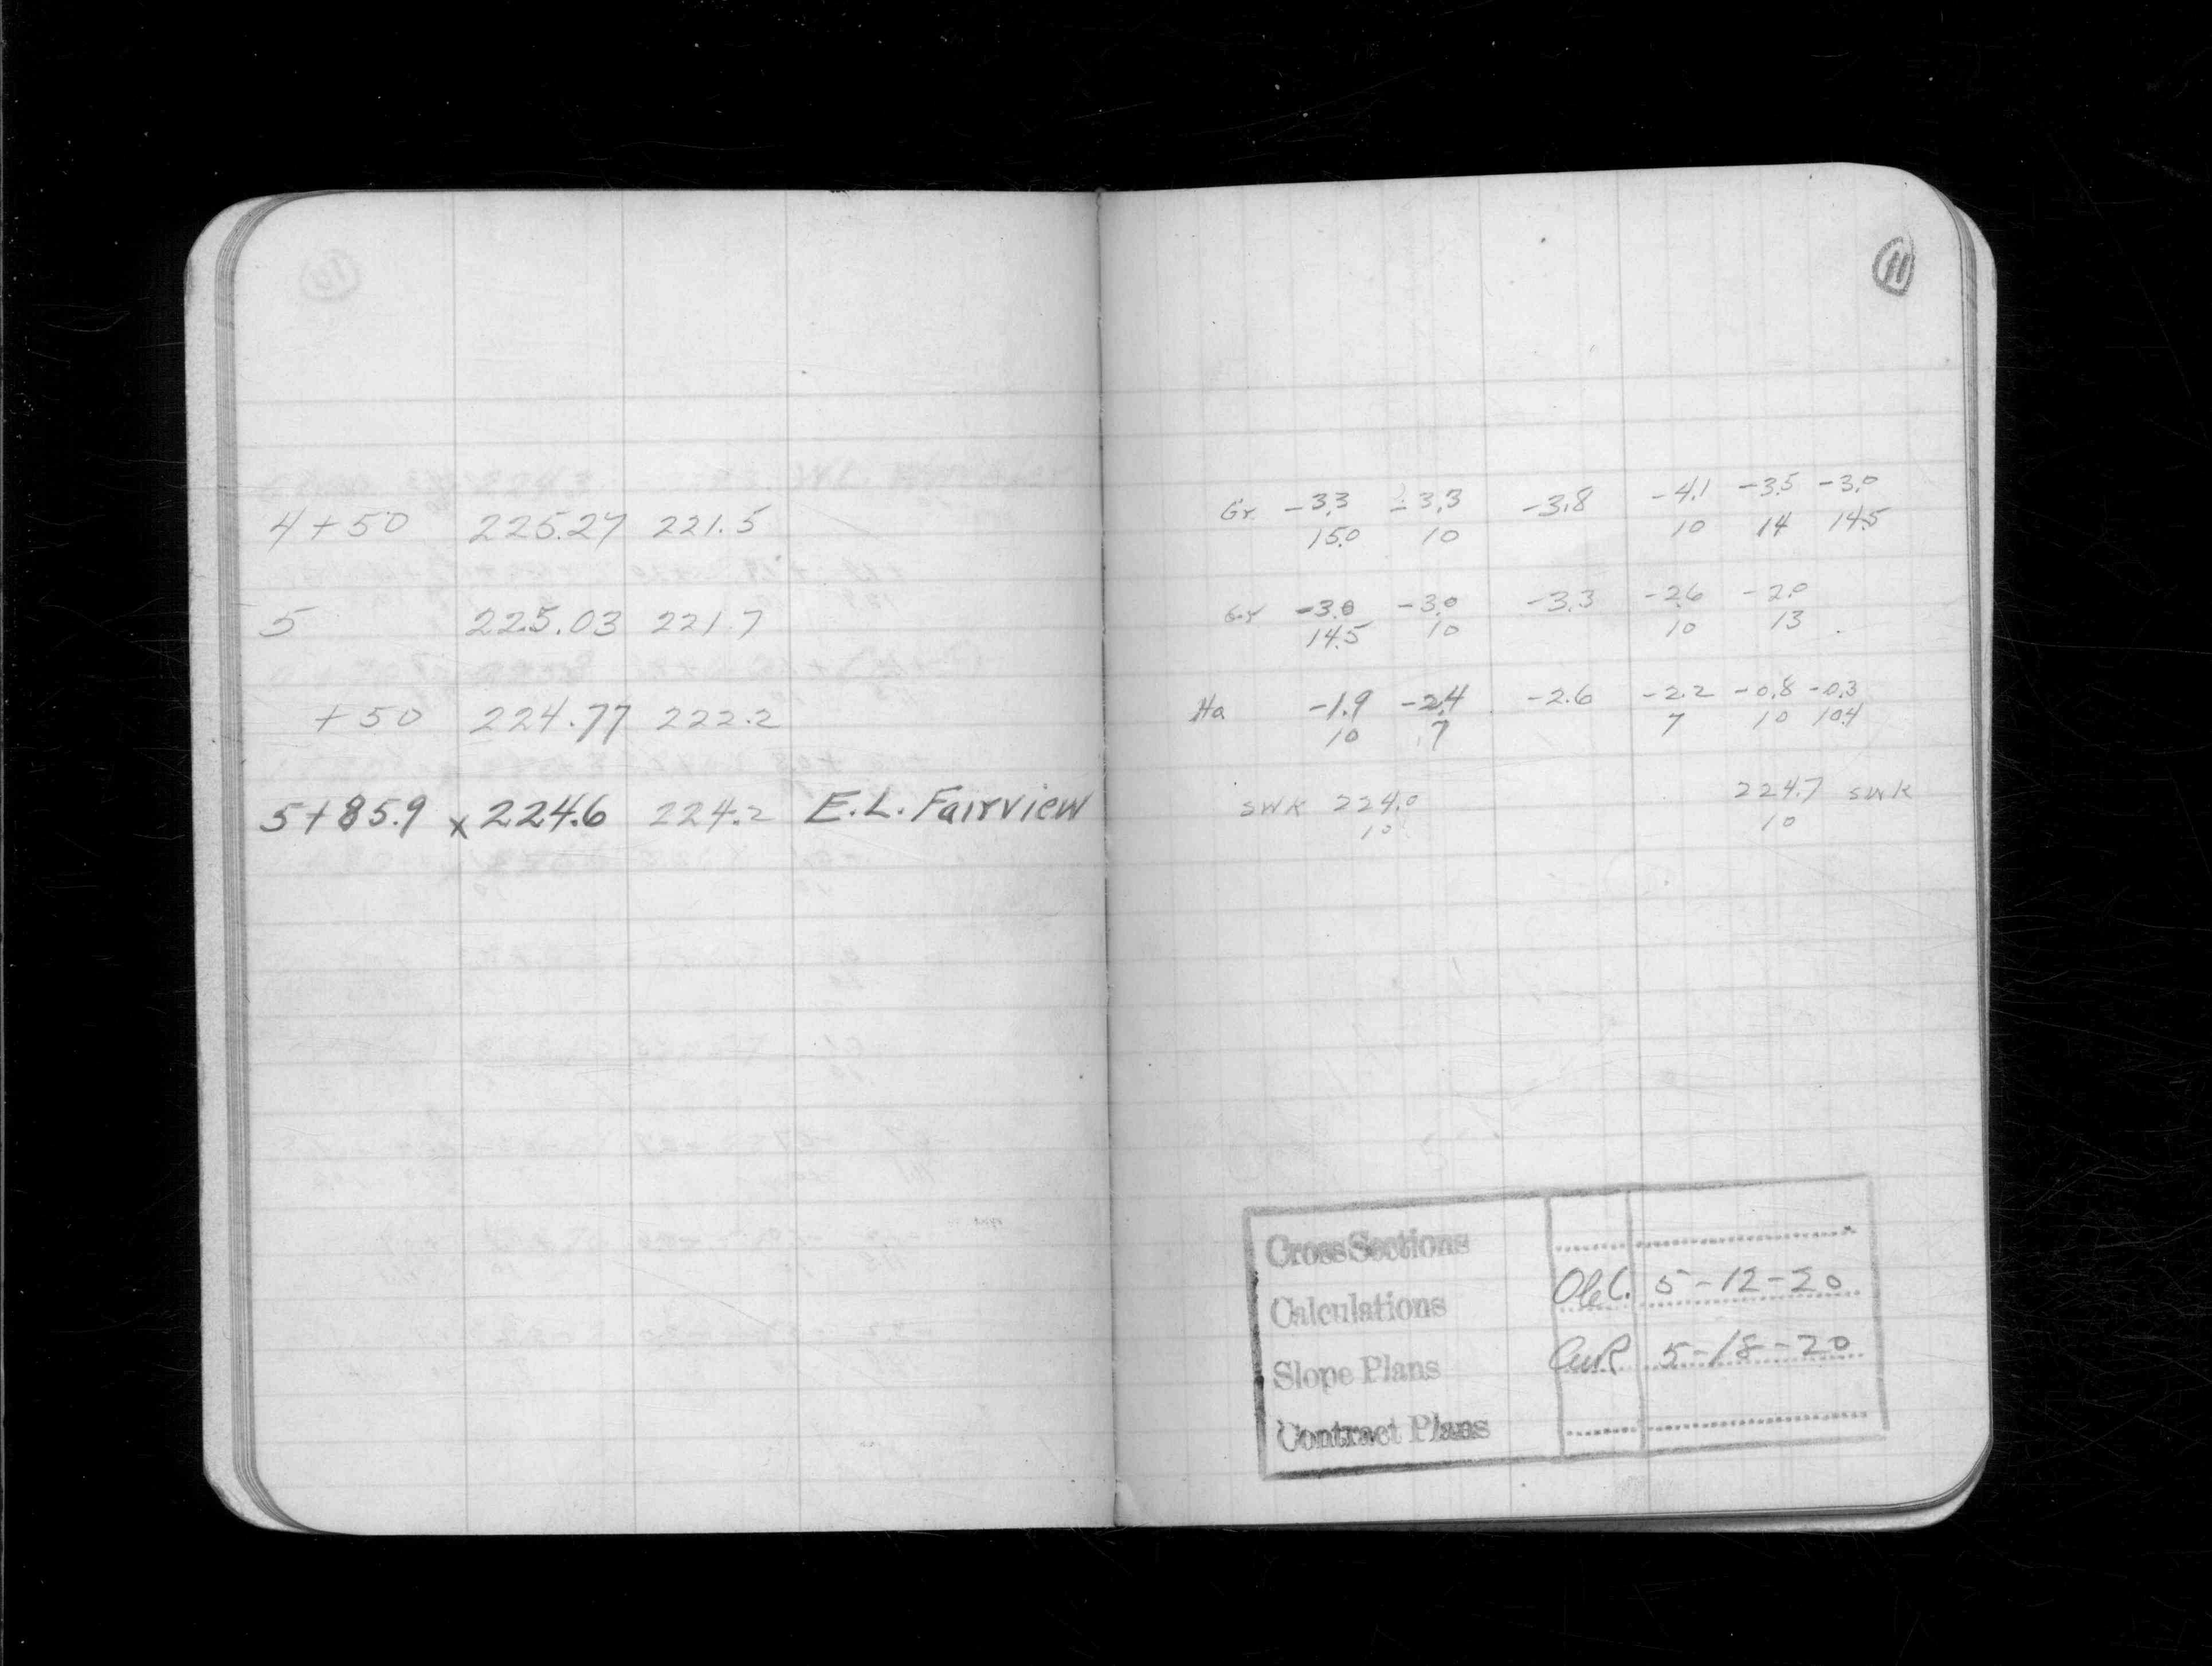 11
4+50 225.27 221.5
Gr -3.3 -3.3 -3.8 -4.1 -3.5 -3.0
15.0 10 10 14 14.5
5 225.03 221.7
Gr -3.0 -3.0 -3.3 -2.6 -2.0
14.5 10 10 13
+50 224.77 222.2
Ha -1.9 -2.4 -2.6 -2.2 -0.8 -0.3
10 7 7 10 10.4
5+85.9 x 224.6 224.2 E.L. Fairview
SWK 224.0 224.7 SWK
10 10
Cross Sections
Calculations 5-12-20
Slope Plans 5-18-20
Contract Plans